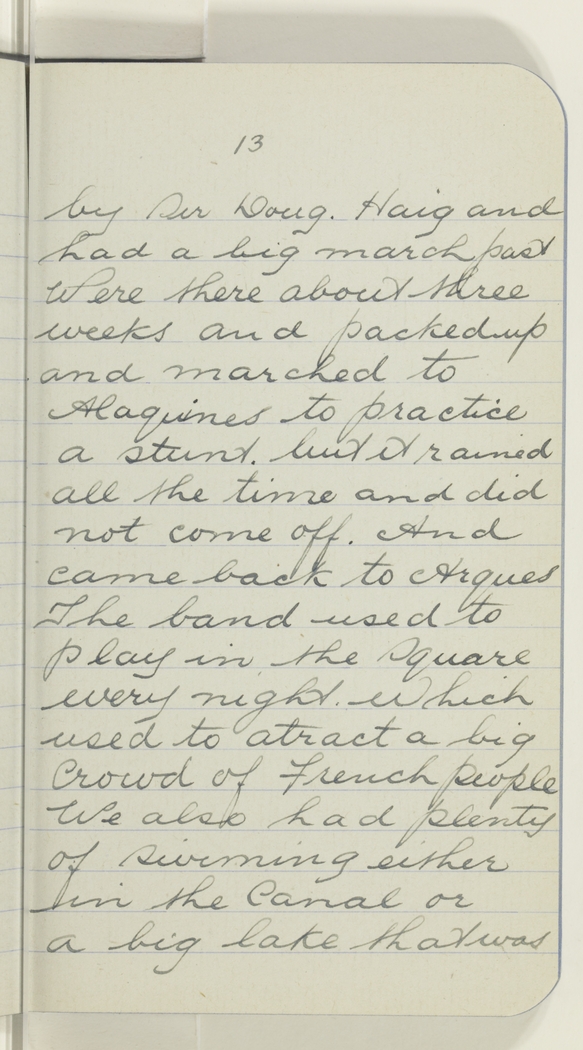 13
by Sir Doug. Haig and
had a big march past
Were there about three
weeks and packed up
and marched to
Alaquines to practice
a stunt. but it rained
all the time and did
not come off. And
came back to Arques
The band used to
play in the square
every night. which
used to atract a big
Crowd of French people
We also had plenty
of swimming either
in the Canal or
a big lake that was